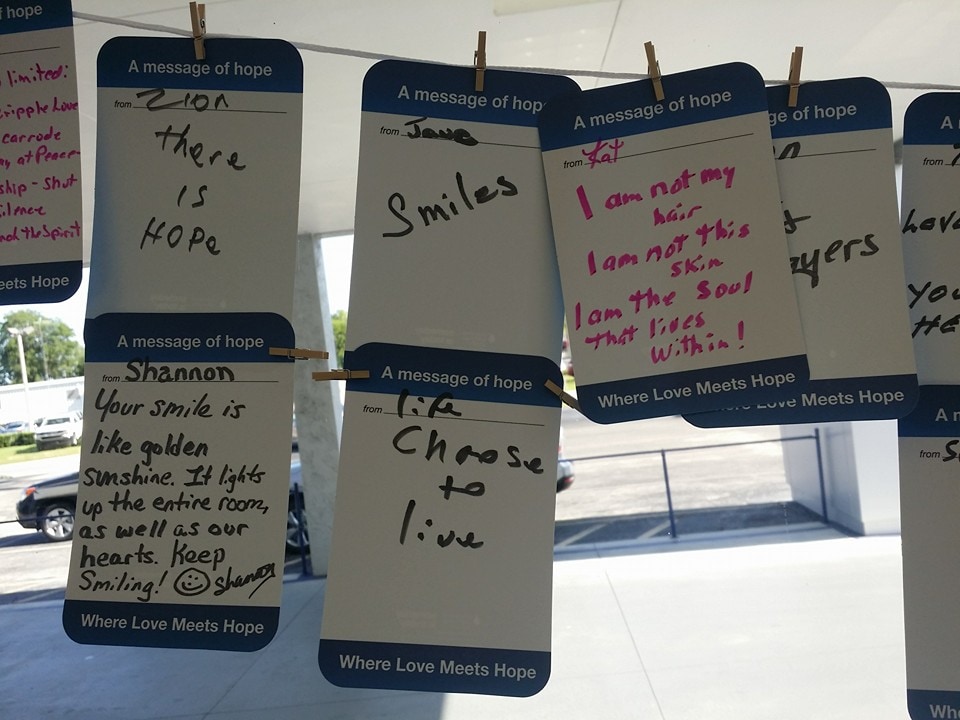 of hope
limited:
cripple Love
carrode
at Peace-
ship - Shut
Silence
the Spirit
Meets Hope
A message of hope
from Zion
there
is
Hope
A message of hope
from Shannon
Your smile is
like golden
sunshine. It lights
up the entire room,
as well as our
hearts. Keep
Smiling! Shannon
Where Love Meets Hope
A message of hop
from Jane
Smiles
A message of hope
from life
Choose
to
live
Where Love Meets Hope
A message of hope
from Kat
I am not my
hair
I am not this
skin
I am the Soul
that lives
within!
Where Love Meets Hope
ge of hope
ayers
Where Love Meets Hope
A
from
You
HE
A m
from S
Wh